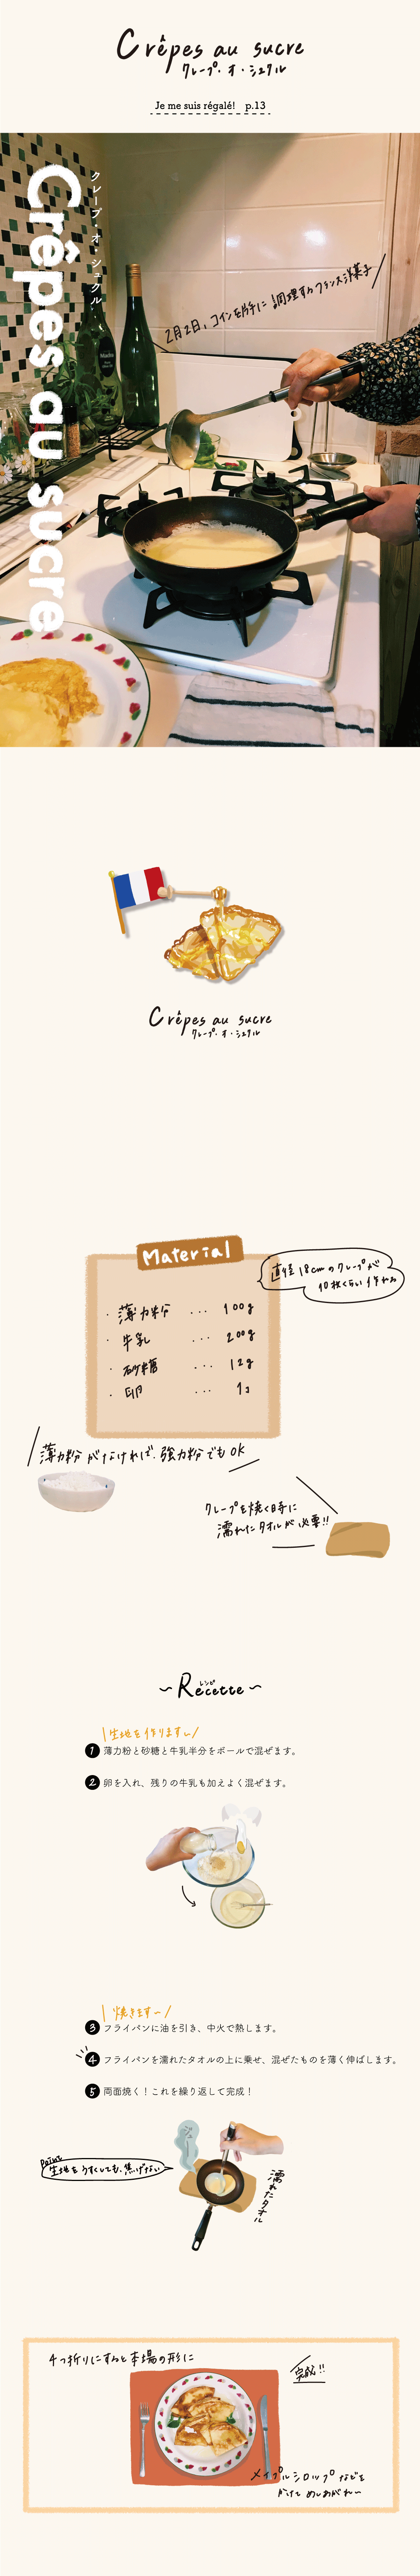 Crêpes au sucre
クレープ・オ・シュクル
Je me suis régalé! p.13
Crêpes au sucre
クレープ・オ・シュクル
2月2日、コインを片手に調理するフランス洋菓子
Crêpes au sucre
クレープ・オ・シュクル
Material
直径18cmのクレープが
10枚くらい作れる
・薄力粉 ... 100g
・牛乳 ... 200g
・砂糖 ... 12g
・卵 ... 1コ
薄力粉がなければ、強力粉でもOK
クレープを焼く時に
濡れたタオルが必要!!
~Recette~
レシピ
生地を作りますし
1 薄力粉と砂糖と牛乳半分をボールで混ぜます。
2 卵を入れ、残りの牛乳も加えよく混ぜます。
焼きます~
3 フライパンに油を引き、中火で熱します。
4 フライパンを濡れたタオルの上に乗せ、混ぜたものを薄く伸ばします。
5 両面焼く!これを繰り返して完成!
ジュー
Point
生地をうすくしても、焦げない
濡れたタオル
4つ折りにすると本場の形に
完成!!
メイプルシロップなどを
かけて めしあがれ~